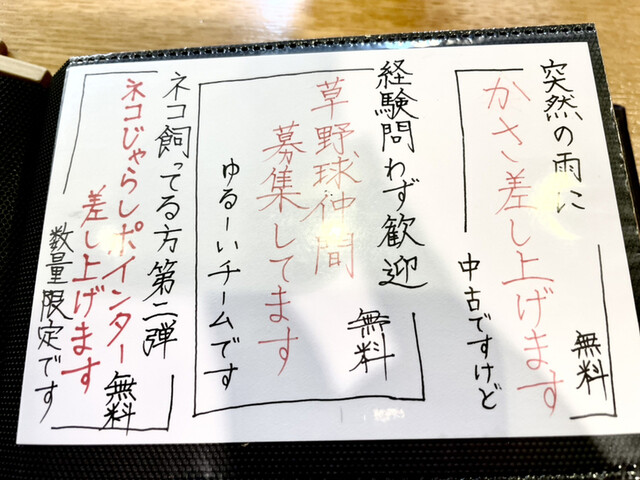 突然の雨に
かさ差し上げます
中古ですけど
無料
経験問わず歓迎
草野球仲間
募集してます
ゆるーいチームです
無料
ネコ飼ってる方第二弾
ネコじゃらしポインター
差し上げます
無料
数量限定です